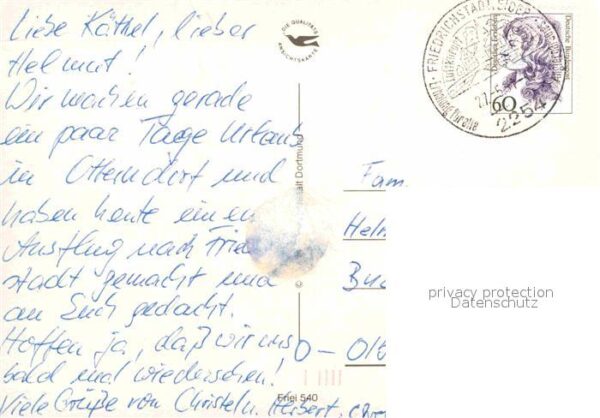 Liebe Käthel, lieber
Helmut!
Wir machen gerade
ein paar Tage Urlaub
in Otterndorf und
haben heute einen
Ausflug nach Fried
stadt gemacht und
an Euch gedacht.
Hoffen ja, daß wir uns
bald mal wiedersehen!
Viele Grüße von Christel u. Herbert
DIE QUALITÄTS
ANSICHTSKARTE
FRIEDRICHSTADT, EIDER
60
2254
Deutsche Bundespost
Dortmund
©
Frie 540
Fam.
D –
privacy protection
Datenschutz